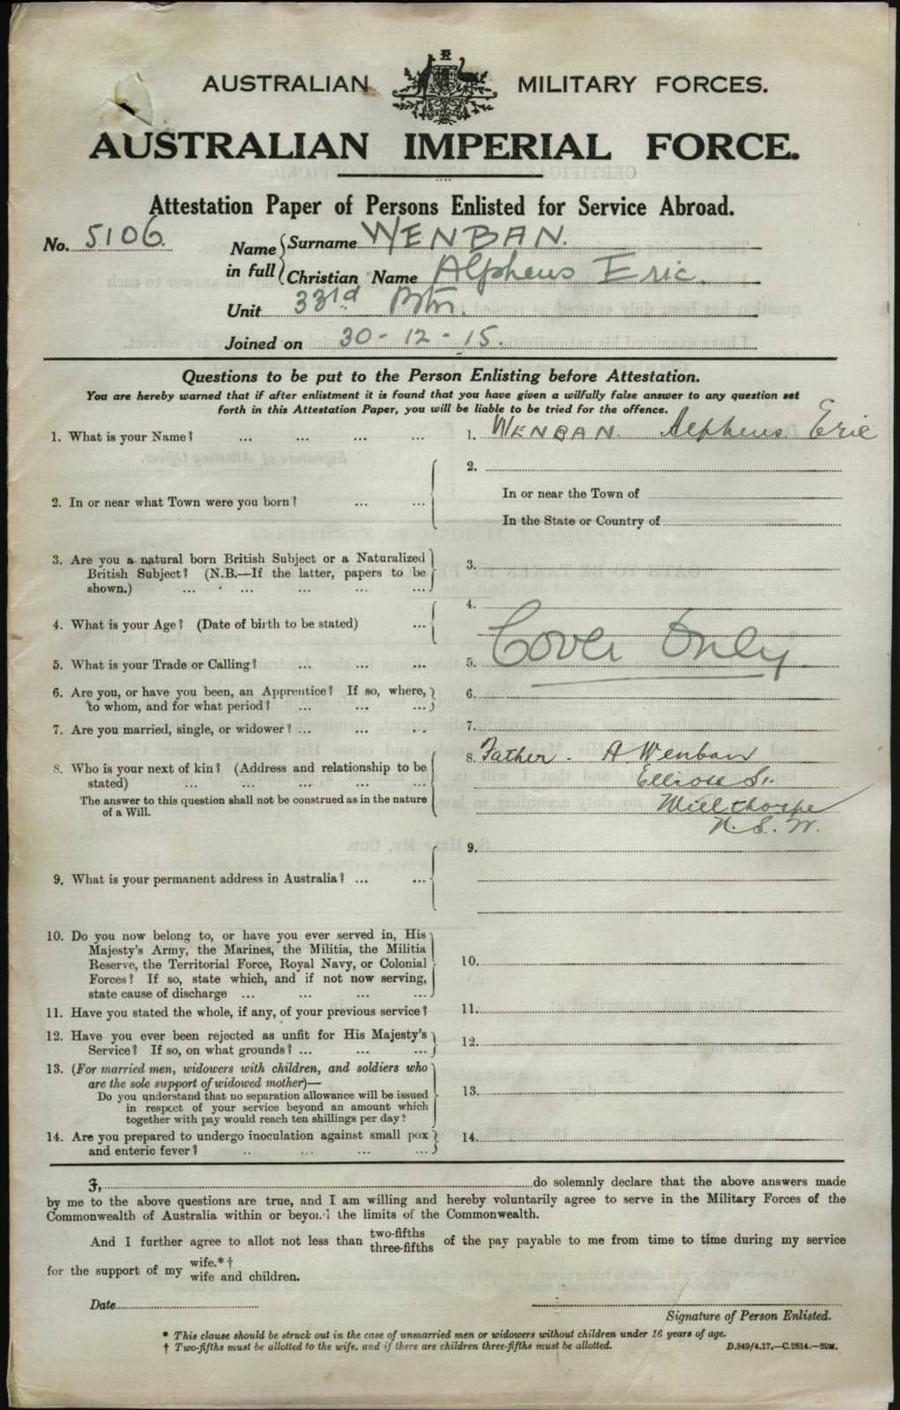 AUSTRALIAN MILITARY FORCES.
AUSTRALIAN IMPERIAL FORCE.
Attestation Paper of Persons Enlisted for Service Abroad.
No. 5106 Name in full { Surname WENBAN.
Christian Name Alpheus Eric.
Unit 33rd Btn.
Joined on 30-12-15.
Questions to be put to the Person Enlisting before Attestation.
You are hereby warned that if after enlistment it is found that you have given a wilfully false answer to any question set
forth in this Attestation Paper, you will be liable to be tried for the offence.
1. What is your Name? ... ... ... ... 1. WENBAN. Alpheus Eric
2. In or near what Town were you born? ... ... 2.
In or near the Town of
In the State or Country of
3. Are you a natural born British Subject or a Naturalized
British Subject? (N.B.—If the latter, papers to be
shown.) ... ... ... ... ... 3.
4. What is your Age? (Date of birth to be stated) ... 4.
Cover Only
5. What is your Trade or Calling? ... ... ... 5.
6. Are you, or have you been, an Apprentice? If so, where,
to whom, and for what period? ... ... ... 6.
7. Are you married, single, or widower? ... ... ... 7.
8. Who is your next of kin? (Address and relationship to be
stated) ... ... ... ... ...
The answer to this question shall not be construed as in the nature
of a Will.
8. Father. A Wenban
Elliott St.
N.S.W.
9. What is your permanent address in Australia? ... ... 9.
10. Do you now belong to, or have you ever served in, His
Majesty's Army, the Marines, the Militia, the Militia
Reserve, the Territorial Force, Royal Navy, or Colonial
Forces? If so, state which, and if not now serving,
state cause of discharge ... ... ... ... 10.
11. Have you stated the whole, if any, of your previous service? 11.
12. Have you ever been rejected as unfit for His Majesty's
Service? If so, on what grounds? ... ... ... 12.
13. (For married men, widowers with children, and soldiers who
are the sole support of widowed mother)—
Do you understand that no separation allowance will be issued
in respect of your service beyond an amount which
together with pay would reach ten shillings per day? 13.
14. Are you prepared to undergo inoculation against small pox
and enteric fever? .. ... ... ... 14.
I, do solemnly declare that the above answers made
by me to the above questions are true, and I am willing and hereby voluntarily agree to serve in the Military Forces of the
Commonwealth of Australia within or beyond the limits of the Commonwealth.
And I further agree to allot not less than two-fifths three-fifths of the pay payable to me from time to time during my service
for the support of my wife.*† wife and children.
Date
Signature of Person Enlisted.
* This clause should be struck out in the case of unmarried men or widowers without children under 16 years of age.
† Two-fifths must be allotted to the wife, and if there are children three-fifths must be allotted. D.849/4.17.—C.2814.—20M.